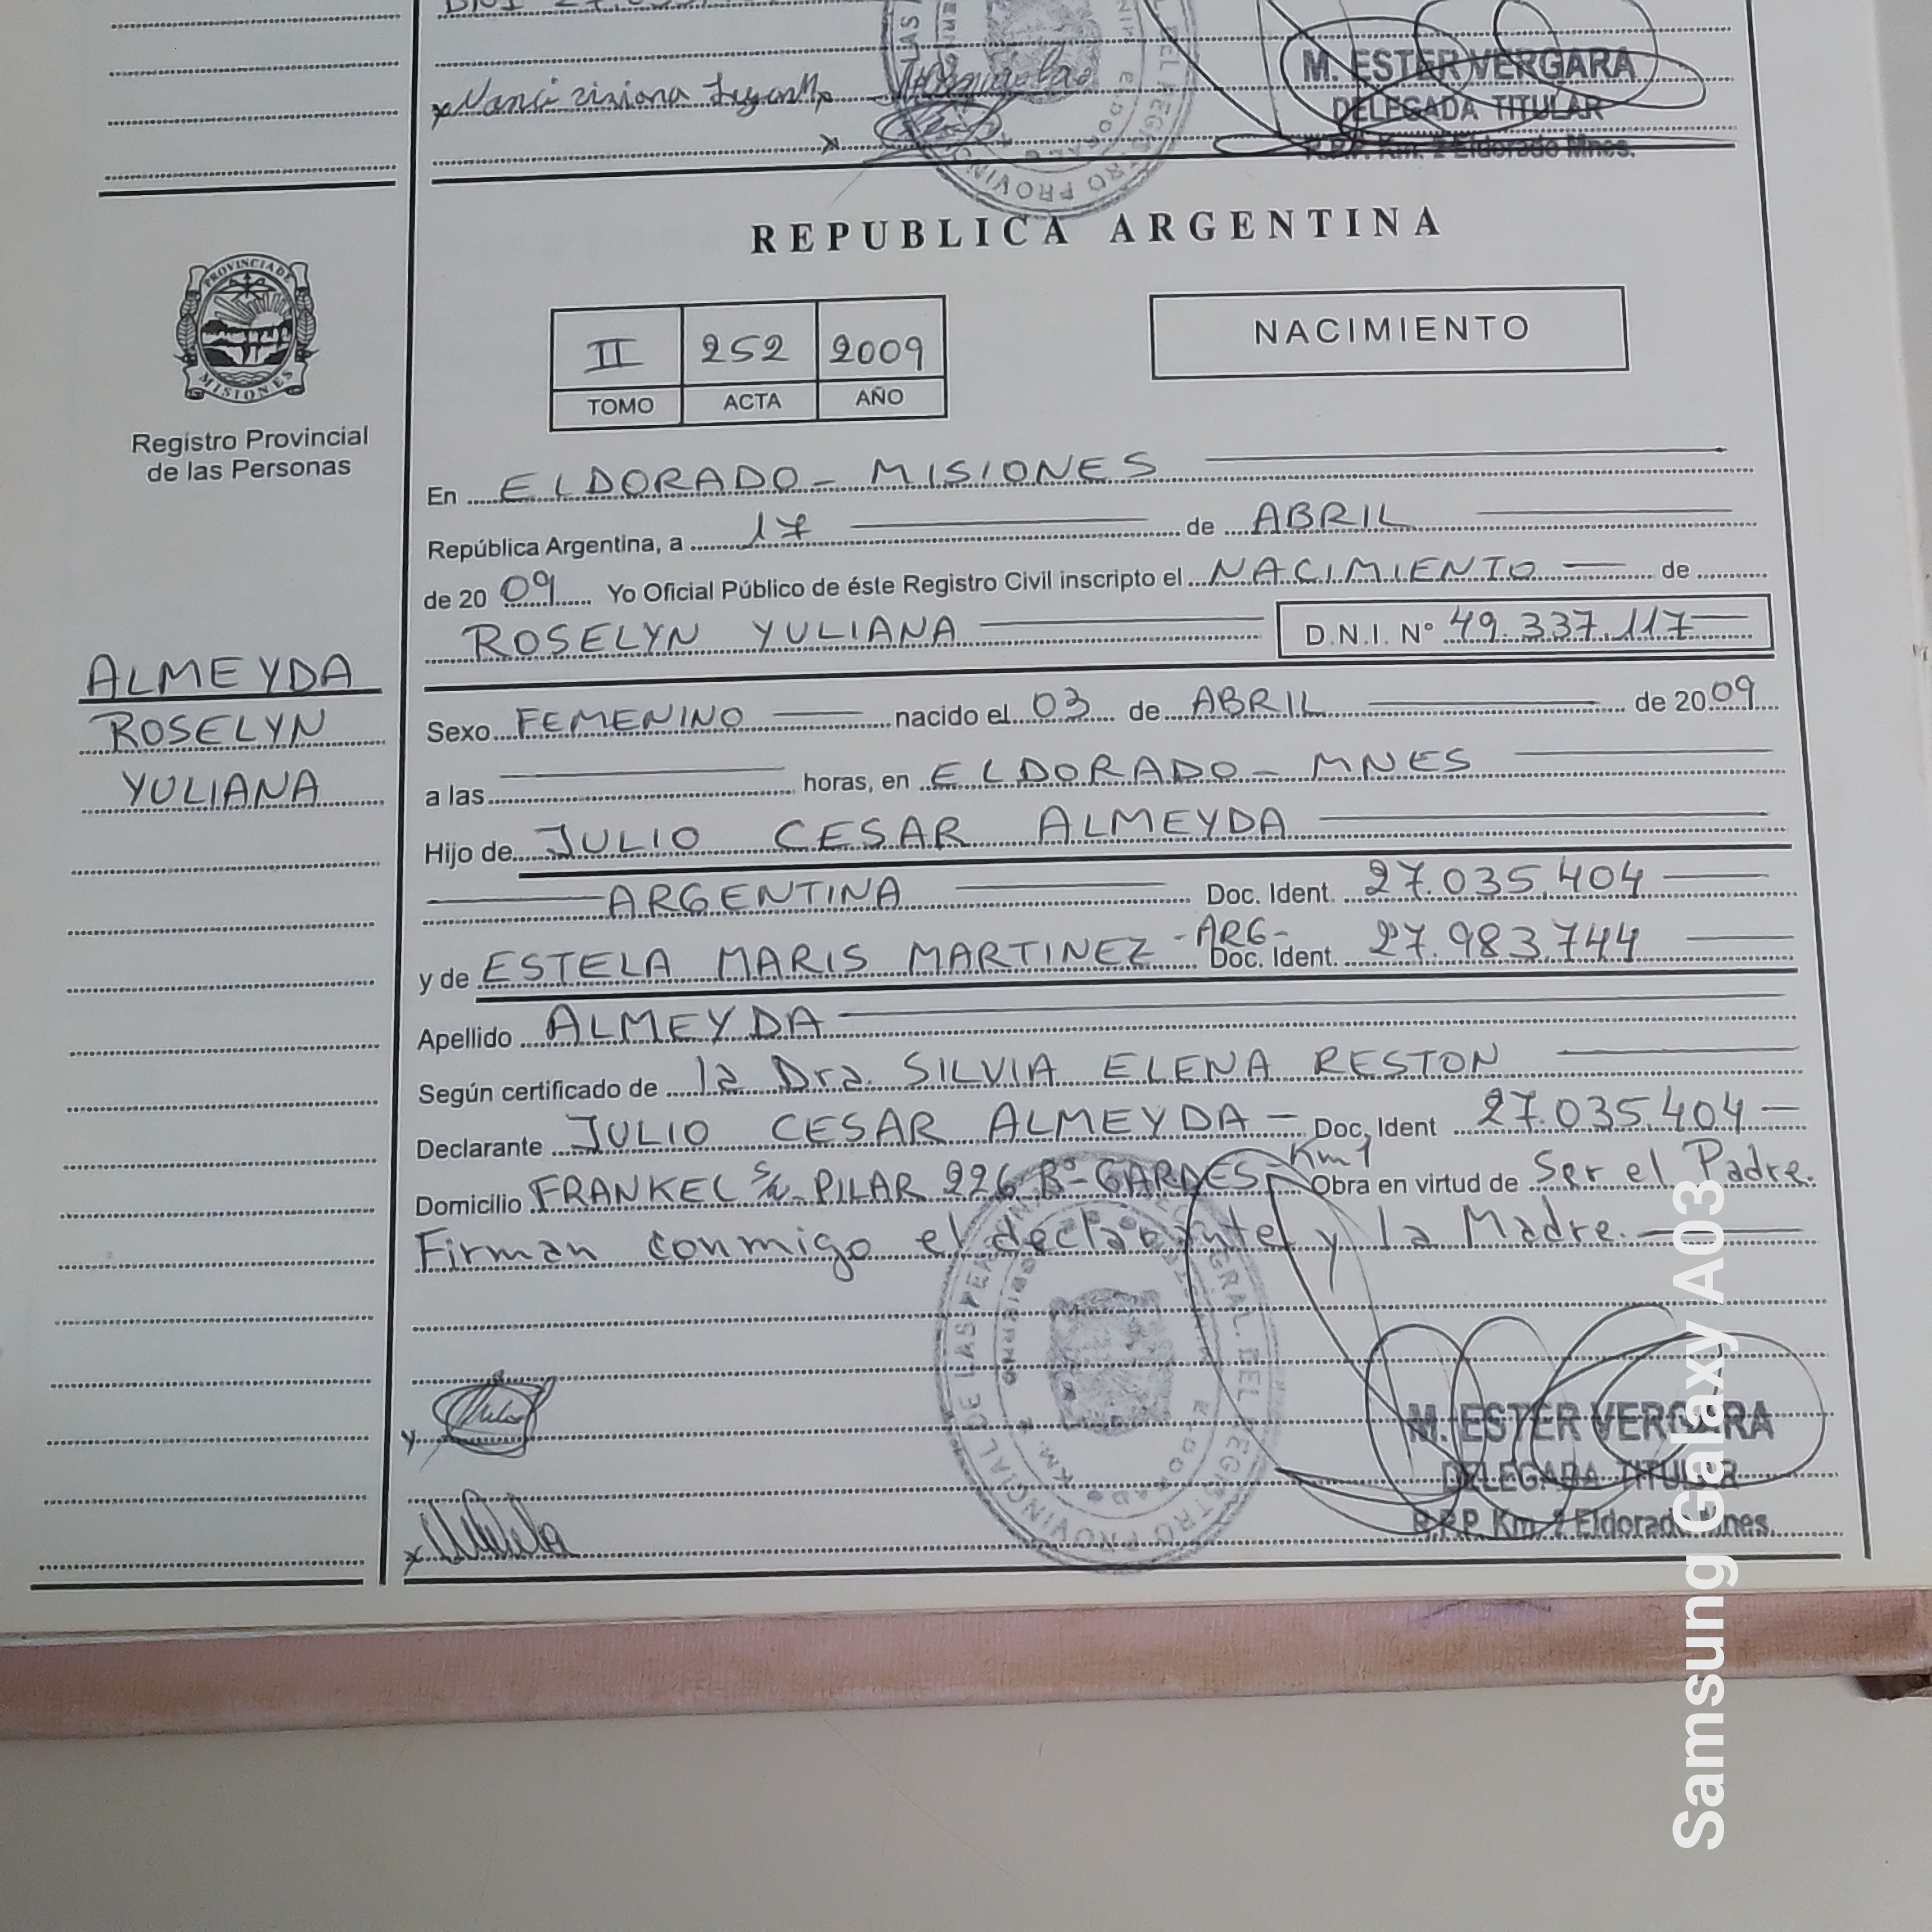 M. ESTER VERGARA
DELEGADA TITULAR
R.P.P. Km. 2 Eldorado Mnes.
REPUBLICA ARGENTINA
PROVINCIA DE
MISIONES
Registro Provincial
de las Personas
II 252 2009
TOMO ACTA AÑO
NACIMIENTO
En ELDORADO - MISIONES
República Argentina, a 17 de ABRIL
de 20 09 Yo Oficial Público de éste Registro Civil inscripto el NACIMIENTO de
ROSELYN YULIANA D.N.I. Nº 49.337.117
ALMEYDA
ROSELYN
YULIANA
Sexo FEMENINO nacido el 03 de ABRIL de 2009
a las horas, en ELDORADO - MNES
Hijo de JULIO CESAR ALMEYDA
ARGENTINA Doc. Ident. 27.035.404
y de ESTELA MARIS MARTINEZ -ARG- Doc. Ident. 27.983.744
Apellido ALMEYDA
Según certificado de la Dra. SILVIA ELENA RESTON
Declarante JULIO CESAR ALMEYDA - Doc. Ident 27.035.404
Domicilio FRANKEL PILAR 226 Bº Km 1 Obra en virtud de Ser el Padre.
Firman conmigo el declarante y la Madre.
REGISTRO PROVINCIAL DE LAS
M. ESTER VERGARA
DELEGADA TITULAR
R.P.P. Km. 2 Eldorado Mnes.
Samsung Galaxy A03